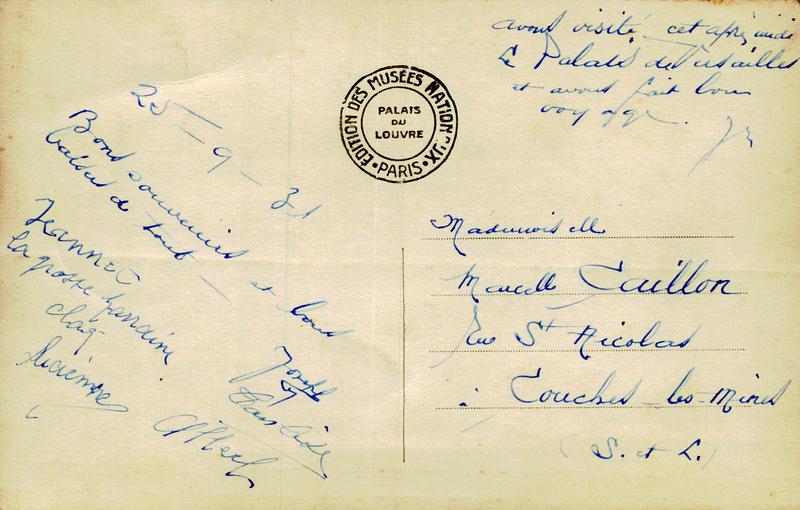 avons visité cet après midi
Le Palais de Versailles
et avons fait bon
voyage.
ÉDITION DES MUSÉES NATIONAUX
PALAIS
DU
LOUVRE
• PARIS •
25 - 9 - 31
Bons souvenirs et bons
baisers de tous -
Jeanne
la grosse
Joseph
Lucienne
Albert
Mademoiselle
Marcelle Caillon
Rue St Nicolas
à Couches-les-Mines
(S. et L.)